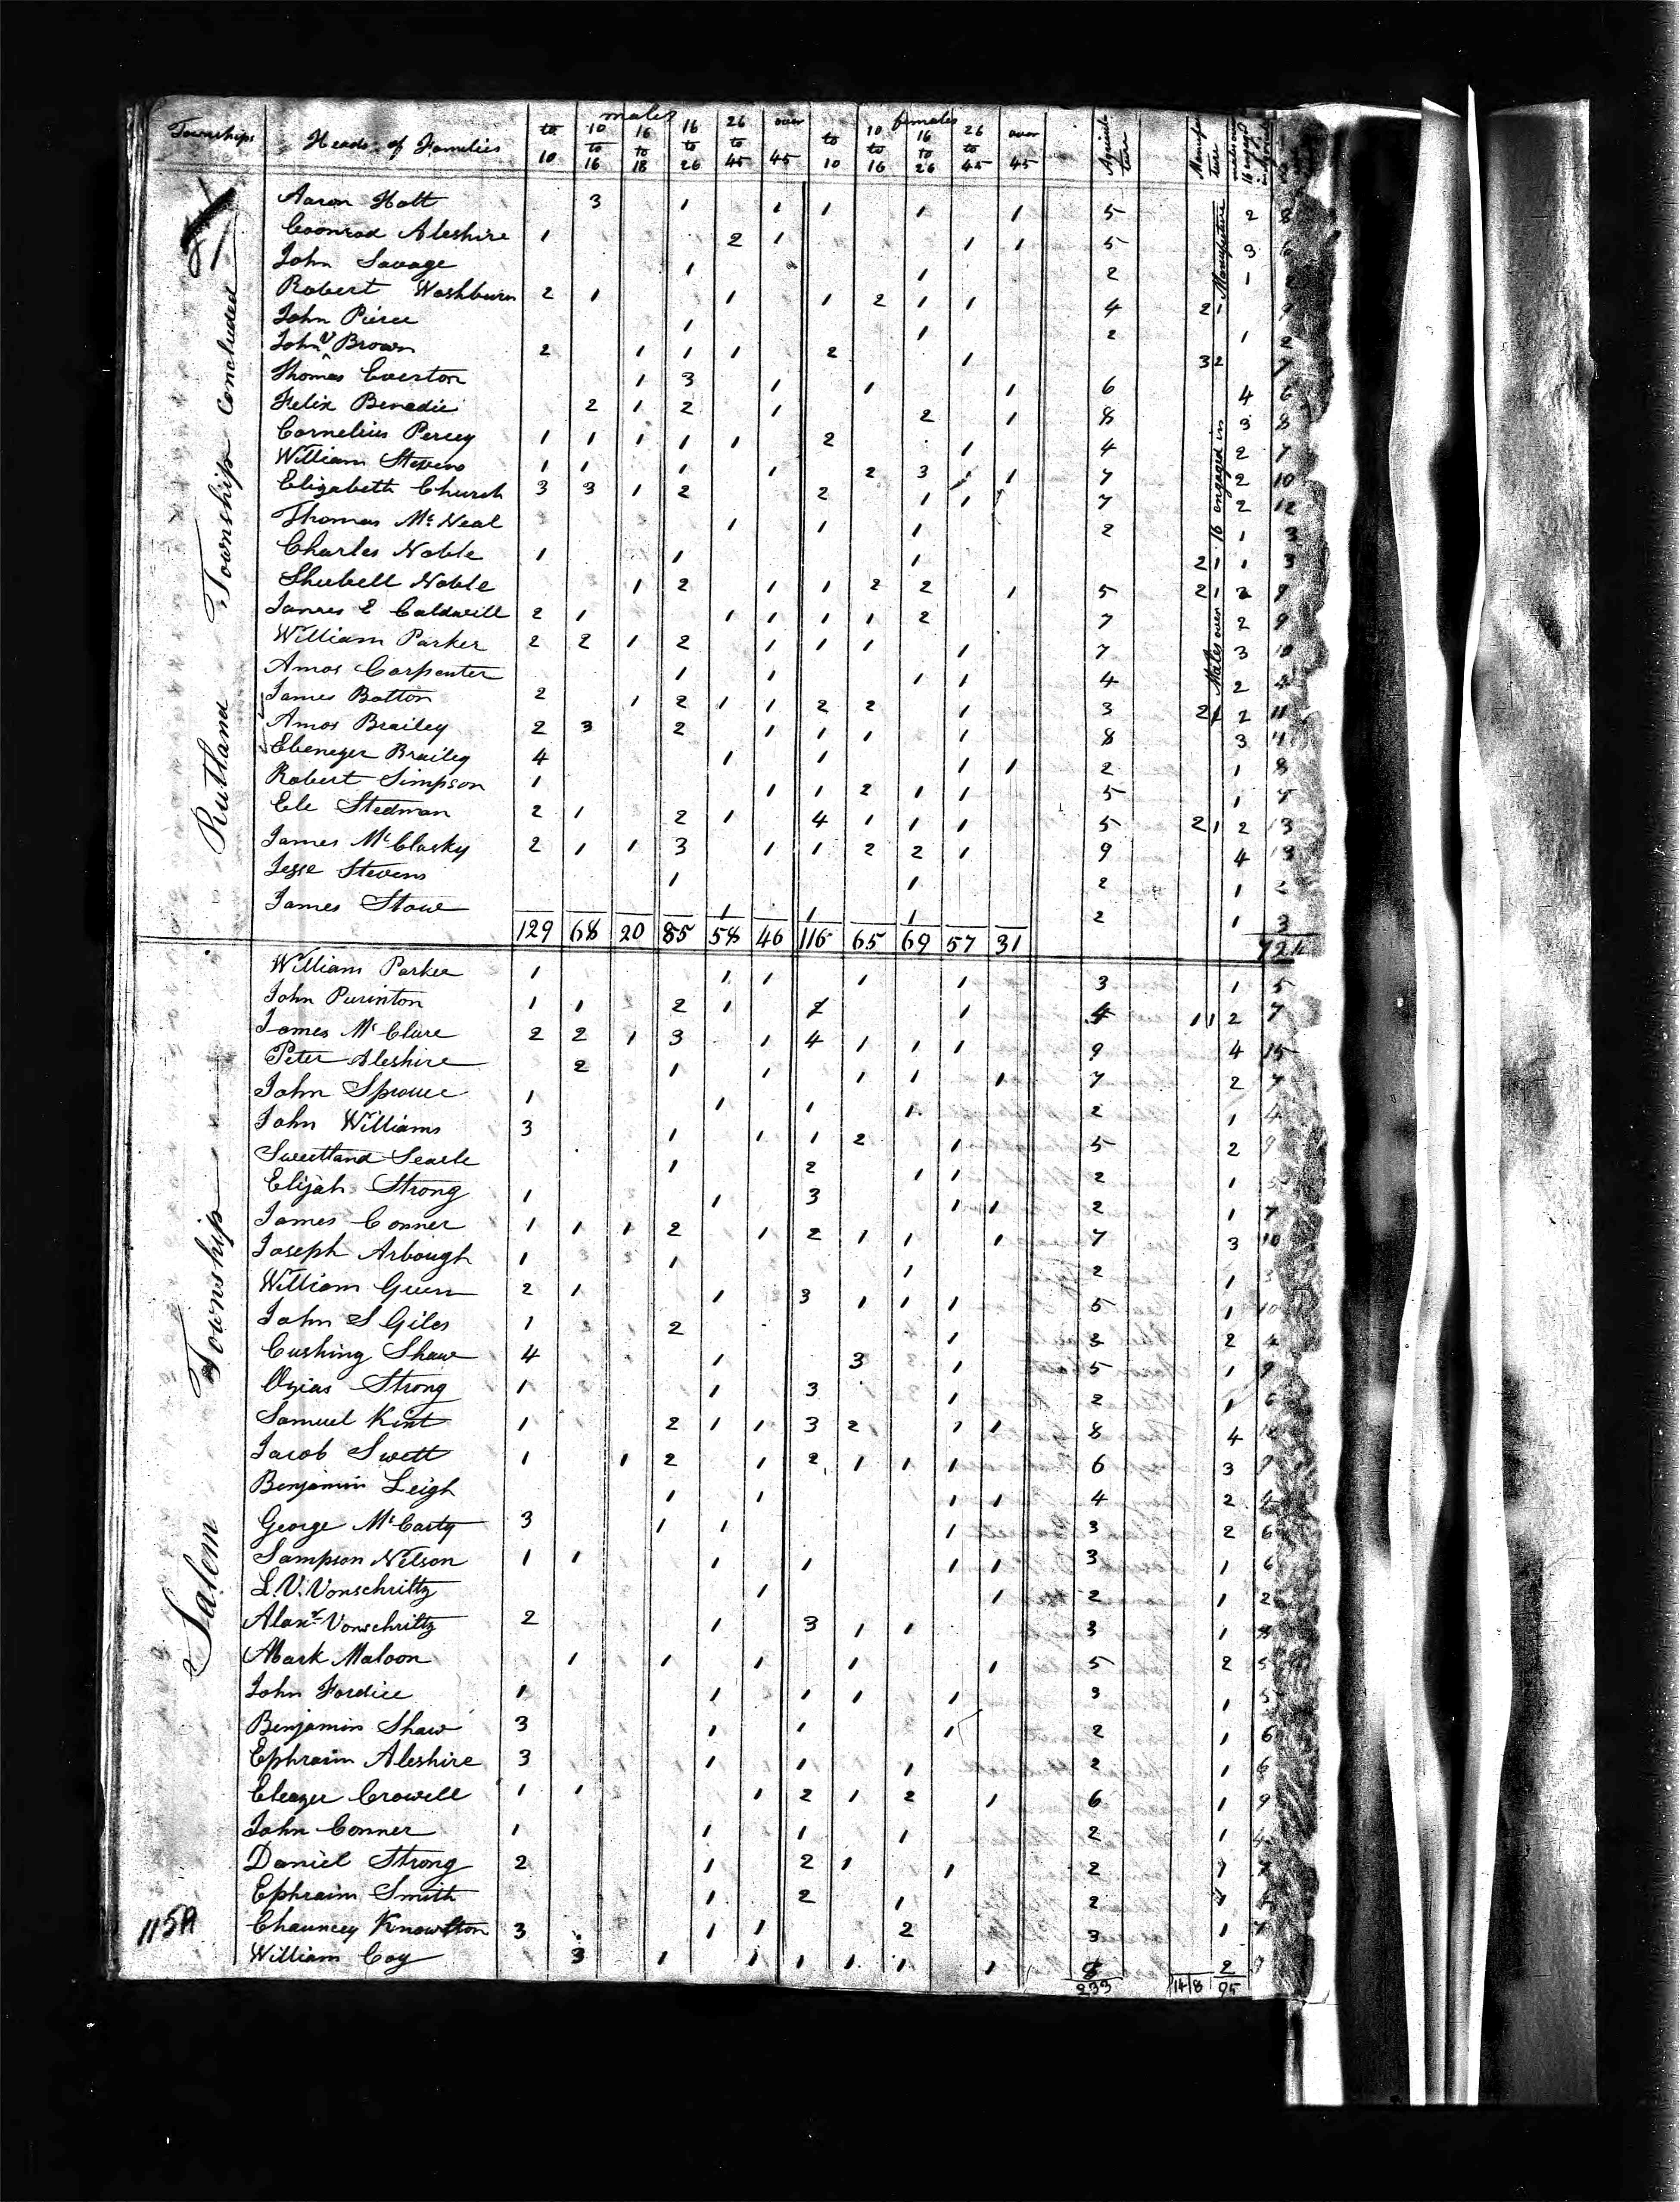 Townships Heads of Families males to 10 10 to 16 16 to 18 16 to 26 26 to 45 over 45 females to 10 10 to 16 16 to 26 26 to 45 over 45 Agriculture Manufacture
Rutland Township Concluded
Males over 16 engaged in Manufacture
Aaron Holt 3 1 1 1 1 1 5 2 8
Coonrad Aleshire 1 2 1 1 1 5 3 6
John Savage 1 1 2 1 2
Robert Washburn 2 1 1 1 2 1 1 4 2 1 9
John Pierce 1 1 2 1 2
John V Brown 2 1 1 1 2 1 3 2 7
Thomas Everton 1 3 1 1 1 6 4 6
Felix Benedic 2 1 2 1 2 1 8 3 8
Cornelius Percey 1 1 1 1 1 2 1 4 2 7
William Stevens 1 1 1 1 2 3 1 1 7 2 10
Elizabeth Church 3 3 1 2 2 1 1 1 7 2 12
Thomas McNeal 1 1 1 2 1 3
Charles Noble 1 1 1 2 1 1 3
Shubell Noble 1 2 1 1 2 2 1 5 2 1 2 9
James E Caldwell 2 1 1 1 1 1 2 7 2 9
William Parker 2 2 1 2 1 1 1 1 7 3 10
Amos Carpenter 1 1 1 1 4 2 4
James Batton 2 1 2 1 1 2 2 1 3 2 1 2 11
Amos Brailey 2 3 2 1 1 1 1 8 3 11
Ebenezer Brailey 4 1 1 1 1 2 1 8
Robert Simpson 1 1 1 2 1 1 5 1 7
Ele Stedman 2 1 2 1 4 1 1 1 5 2 1 2 13
James McClasky 2 1 1 3 1 1 2 2 1 9 4 13
Jesse Stevens 1 1 2 1 2
James Stow 1 1 1 2 1 3
129 68 20 85 58 46 116 65 69 57 31 724
Salem Township
William Parker 1 1 1 1 1 3 1 5
John Purinton 1 1 2 1 1 1 4 1 1 2 7
James McClure 2 2 1 3 1 4 1 1 1 9 4 15
Peter Aleshire 2 1 1 1 1 1 7 2 7
John Sprouce 1 1 1 1 2 1 4
John Williams 3 1 1 1 2 1 5 2 9
Sweetland Searle 1 2 1 1 2 1 5
Elijah Strong 1 1 3 1 1 2 1 7
James Conner 1 1 1 2 1 2 1 1 1 7 3 10
Joseph Arbough 1 1 1 2 1 3
William Green 2 1 1 3 1 1 1 5 1 10
John S Giles 1 2 1 3 2 4
Cushing Shaw 4 1 3 1 5 1 9
Ozias Strong 1 1 3 1 2 1 6
Samuel Kent 1 2 1 1 3 2 1 1 8 4 12
Jacob Swett 1 1 2 1 2 1 1 1 6 3 9
Benjamin Leigh 1 1 1 1 4 2 4
George McCarty 3 1 1 1 3 2 6
Sampson Nelson 1 1 1 1 1 1 3 1 6
L. V. Vonschriltz 1 1 2 1 2
Alexr Vonschriltz 2 1 3 1 1 3 1 8
Mark Maloon 1 1 1 1 1 5 2 5
John Fordice 1 1 1 1 1 3 1 5
Benjamin Shaw 3 1 1 1 2 1 6
Ephraim Aleshire 3 1 1 1 2 1 6
Eleazer Crowell 1 1 1 2 1 2 1 6 1 9
John Conner 1 1 1 1 2 1 4
Daniel Strong 2 1 2 1 1 2 1 7
Ephraim Smith 1 2 1 2 1 4
115A
Chauncey Knowlton 3 1 1 2 3 1 7
William Coy 3 1 1 1 1 1 1 8 2 9
233 14 8 95